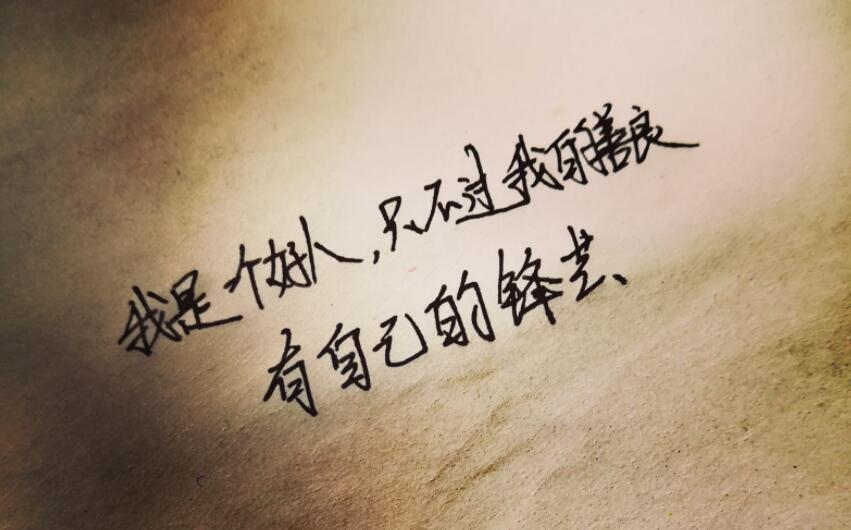 我是个好人,只不过我的善良
有自己的锋芒、